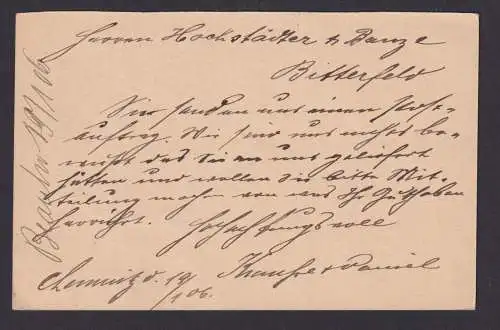 Herren Hochstädter & Danze
Bitterfeld
Sie senden uns einen Post-
auftrag. Wir sind uns nicht be-
wußt das Sie an uns geliefert
hätten und wollen Sie bitte Mit-
teilung machen von was Ihr Guthaben
herrührt. Hochachtungsvoll
Chemnitz d. 19/1 06. Krause & Daniel
19/1 06